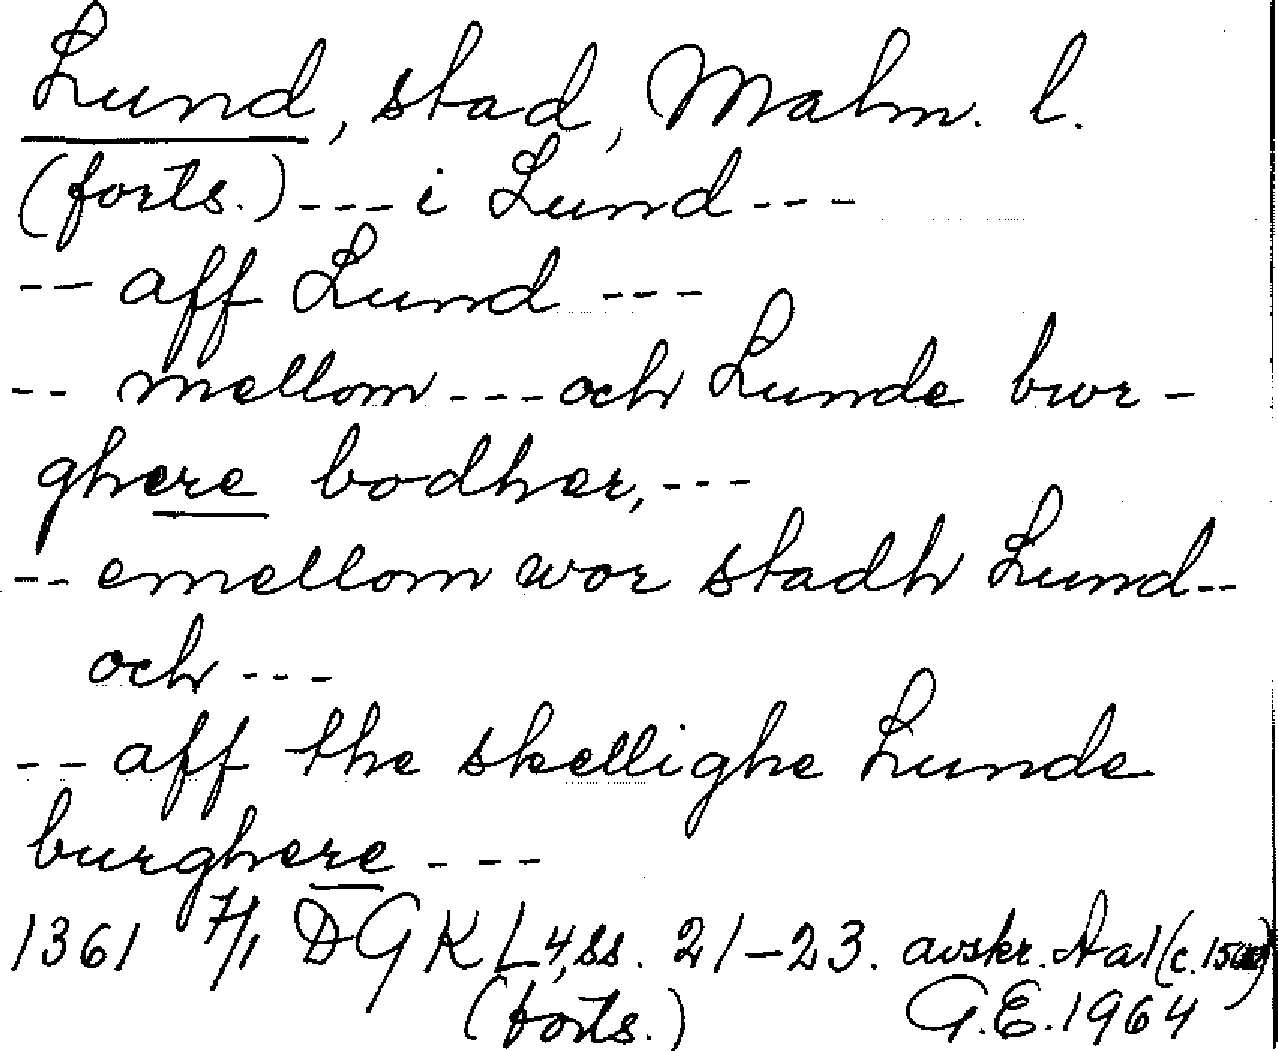 Lund, stad, Malm. l.
(forts.) --- i Lund ---
-- aff Lund ---
-- mellom --- och Lunde bwr-
ghere bodher, ---
-- emellom wor stadh Lund --
och ---
-- aff the skellighe Lunde
burghere ---
1361 7/1 DGKL 4, ss. 21-23. avskr. Aa1 (c. 1500)
(forts.) G.E. 1964